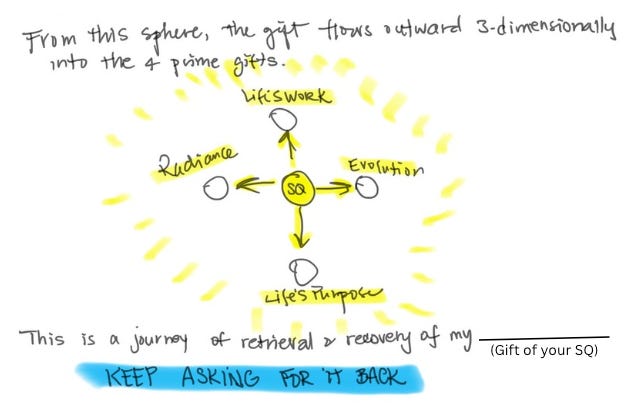 From this sphere, the gift flows outward 3-dimensionally
into the 4 prime gifts.
Life's Work
Radiance
Evolution
SQ
Life's Purpose
This is a journey of retrieval & recovery of my
(Gift of your SQ)
KEEP ASKING FOR IT BACK